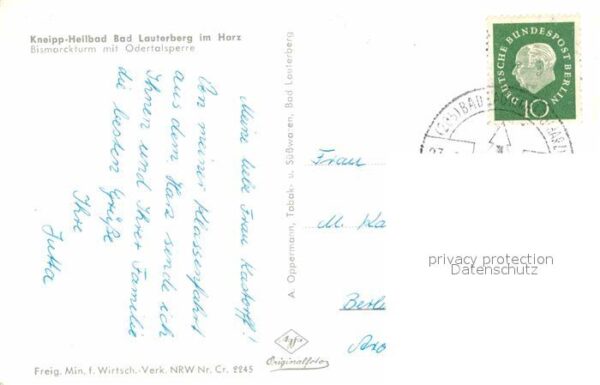 Kneipp-Heilbad Bad Lauterberg im Harz
Bismarckturm mit Odertalsperre
Meine liebe Frau Kastorff!
Von meiner Klassenfahrt
aus dem Harz sende ich
Ihnen und Ihrer Familie
die besten Grüße
Ihre
Jutta
A. Oppermann, Tabak- u. Süßwaren, Bad Lauterberg
Agfa
Originalfoto
Freig. Min. f. Wirtsch.-Verk. NRW Nr. Cr. 2245
DEUTSCHE BUNDESPOST BERLIN
10
BAD
Frau
M. Ka
Berli
privacy protection
Datenschutz